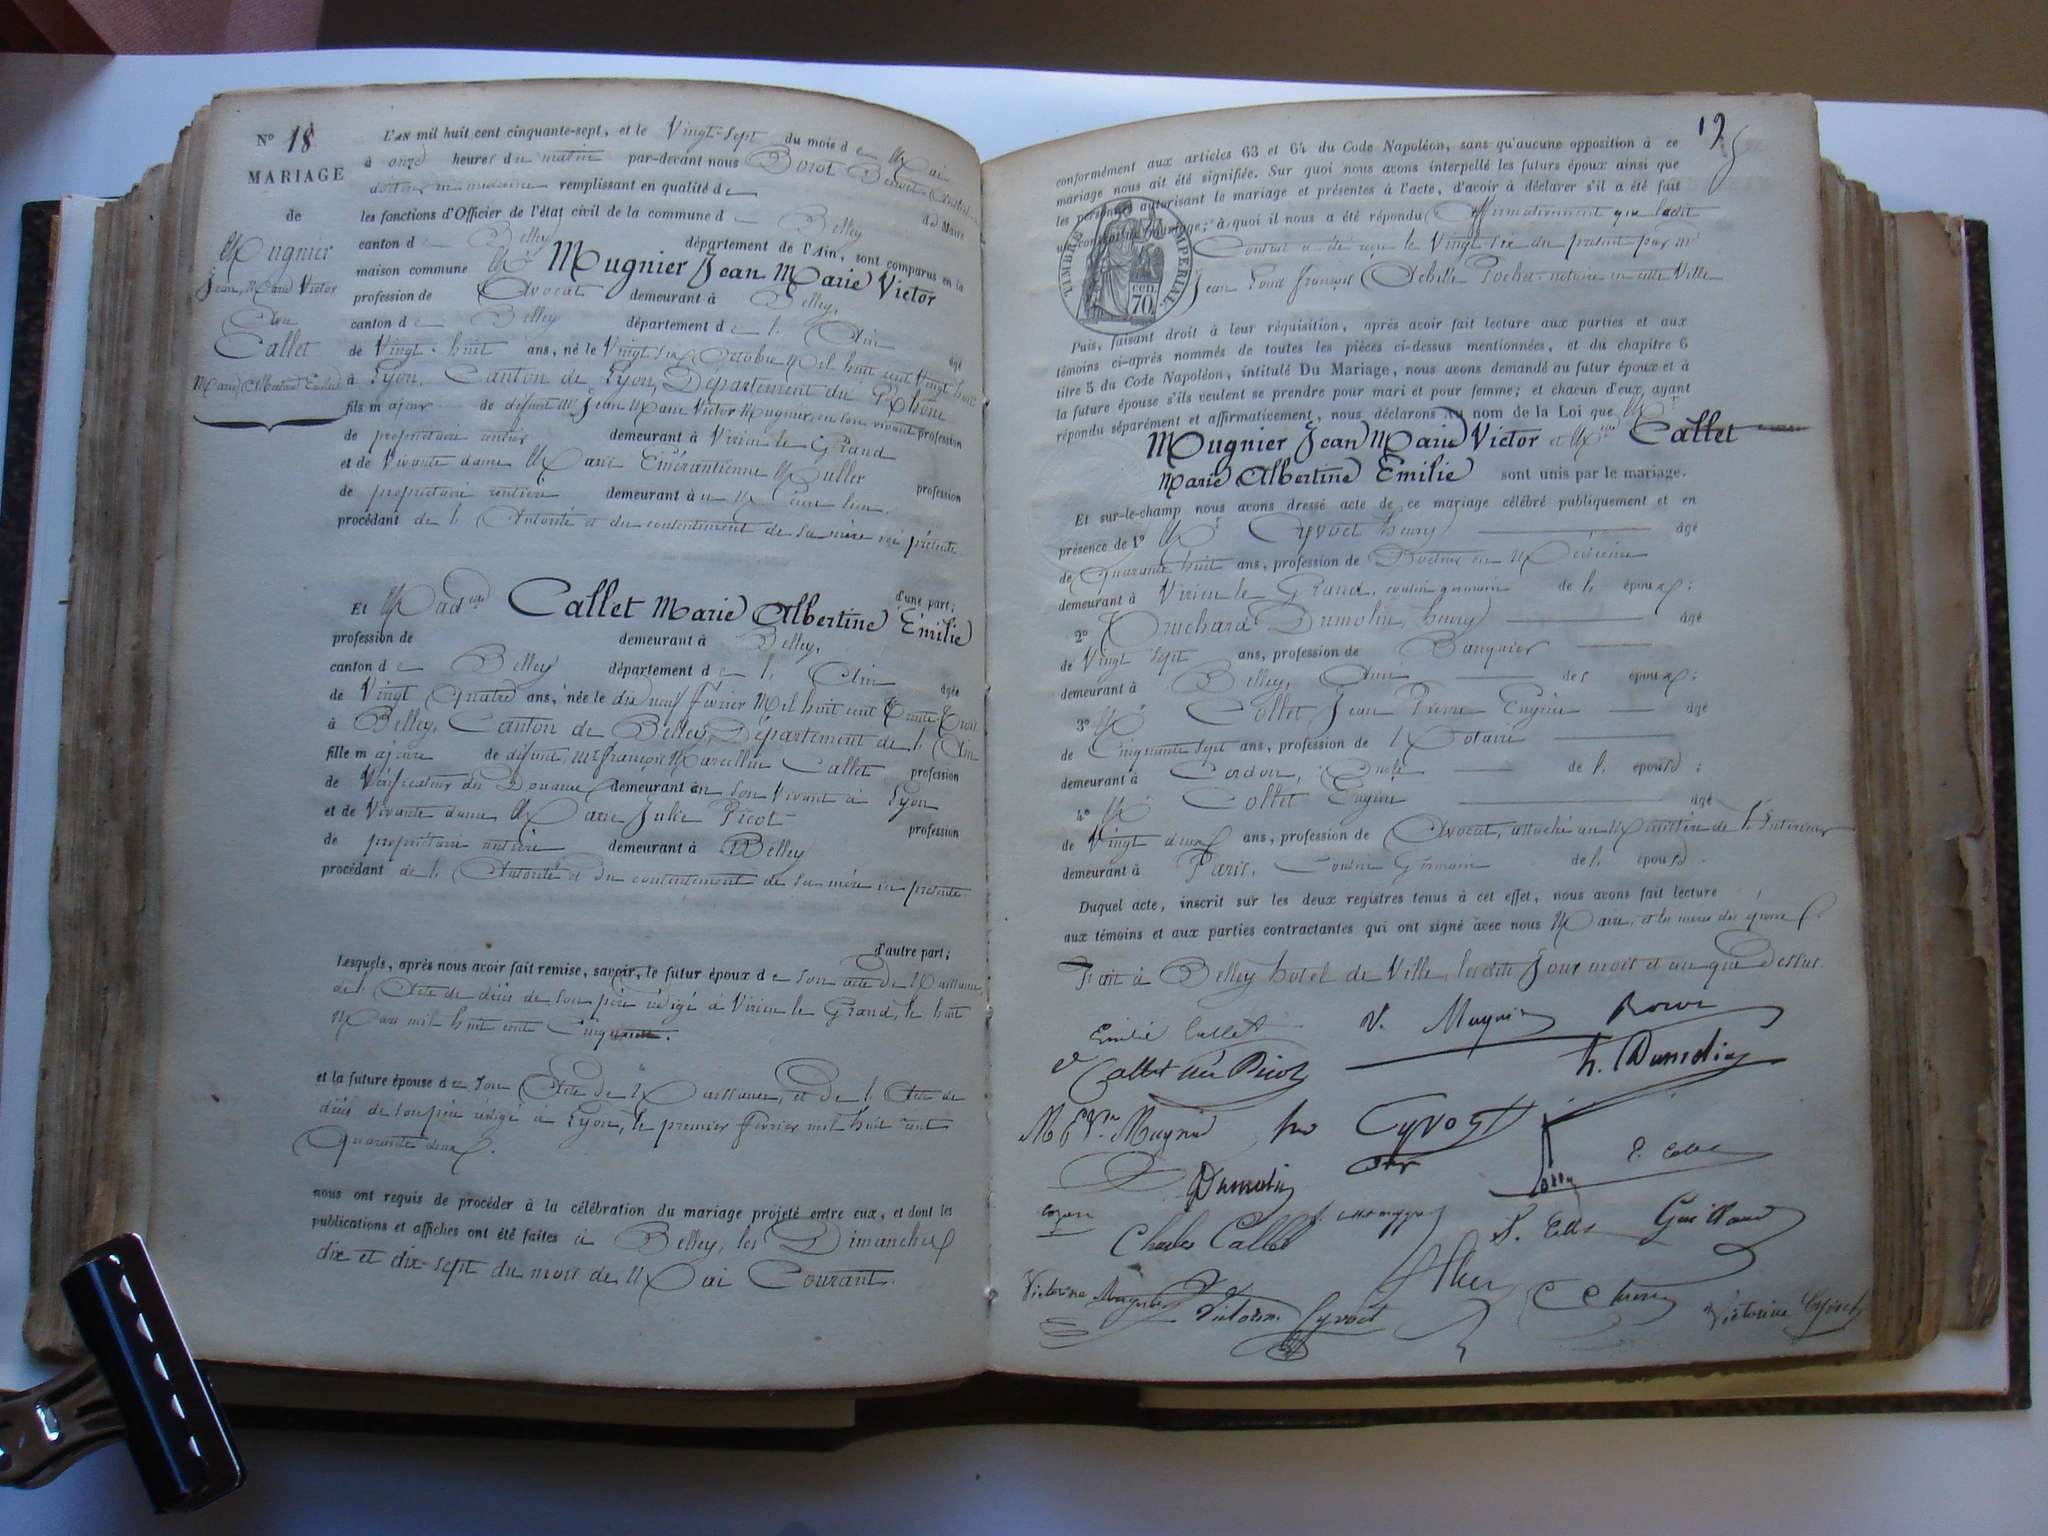 Nº 18
MARIAGE
de
Mugnier
Jean, Marie Victor
Avec
Callet
Marie Albertine Emilie
L'AN mil huit cent cinquante-sept, et le Vingt-sept du mois de Mai
à onze heures du matin par-devant nous
docteur en médecine remplissant en qualité de
de Maire
les fonctions d'Officier de l'état civil de la commune de Belley
canton de Belley département de l'Ain, sont comparus en la
maison commune Mr Mugnier Jean Marie Victor
profession de Avocat demeurant à Belley,
canton de Belley département de l'Ain âgé
de Vingt-huit ans, né le Vingt six Octobre Mil huit cent Vingt huit
à Lyon, Canton de Lyon, Département du Rhône
fils majeur de défunt Mr Jean Marie Victor Mugnier, en son vivant profession
de propriétaire rentier demeurant à Virieu le Grand
et de Vivante dame Marie Muller profession
de propriétaire rentière demeurant à u Même lieu.
procédant de l'Autorité et du contentement de sa mère ici présente
d'une part;
Et Madlle Callet Marie Albertine Emilie
profession de demeurant à Belley,
canton de Belley département de l'Ain âgée
de Vingt Quatre ans, née le dix neuf Février Mil huit cent Trente Trois
à Belley, Canton de Belley, Département de l'Ain
fille majeure de défunt Mr françois Marcellin Callet profession
de Vérificateur des Douanes demeurant en son Vivant à Lyon
et de Vivante dame Marie Julie Picot profession
de propriétaire rentière demeurant à Belley
procédant de l'Autorité et du contentement de sa mère ici présente
d'autre part;
Lesquels, après nous avoir fait remise, savoir, le futur époux de son acte de Naissance,
de l'Acte de décès de son père rédigé à Virieu le Grand, le huit
Mars mil huit cent Cinquante.
et la future épouse de son Acte de Naissance, et de l'Acte de
décès de son père rédigé à Lyon, le premier février mil huit cent
Quarante deux.
nous ont requis de procéder à la célébration du mariage projeté entre eux, et dont les
publications et affiches ont été faites à Belley, les Dimanches
dix et dix-sept du mois de Mai Courant.
19
conformément aux articles 63 et 64 du Code Napoléon, sans qu'aucune opposition à ce
mariage nous ait été signifiée. Sur quoi nous avons interpellé les futurs époux ainsi que
les personnes autorisant le mariage et présentes à l'acte, d'avoir à déclarer s'il a été fait
un contrat de mariage; à quoi il nous a été répondu Affirmativement que ledit
Contrat a été reçu le Vingt six du présent par Me
Jean Louis françois Achille Rochet notaire en cette Ville
TIMBRE IMPERIAL
70 cen
Puis, faisant droit à leur réquisition, après avoir fait lecture aux parties et aux
témoins ci-après nommés de toutes les pièces ci-dessus mentionnées, et du chapitre 6
titre 5 du Code Napoléon, intitulé Du Mariage, nous avons demandé au futur époux et à
la future épouse s'ils veulent se prendre pour mari et pour femme; et chacun d'eux, ayant
répondu séparément et affirmativement, nous déclarons au nom de la Loi que Mr
Mugnier Jean Marie Victor et Mlle Callet
Marie Albertine Emilie sont unis par le mariage.
Et sur-le-champ nous avons dressé acte de ce mariage célébré publiquement et en
présence de 1º Mr Cyvoct henry âgé
de Quarante huit ans, profession de Docteur en Médecine
demeurant à Virieu le Grand, cousin germain de l'époux;
2º Dumolin, henry âgé
de Vingt sept ans, profession de Banquier
demeurant à Belley, Ain des époux;
3º Mr Collet Jean Pierre Eugène âgé
de Cinquante sept ans, profession de Notaire
demeurant à Cordon, Oncle de l'épouse;
4º Mr Collet Eugène âgé
de Vingt deux ans, profession de Avocat, attaché au Ministère de l'Intérieur
demeurant à Paris, Cousin Germain de l'épouse.
Duquel acte, inscrit sur les deux registres tenus à cet effet, nous avons fait lecture
aux témoins et aux parties contractantes qui ont signé avec nous Maire, et les mères des époux.
Fait à Belley hotel de Ville, lesdits Jour mois et an que Dessus.
Emilie Callet V. Mugnier
Callet née Picot h. Dumolin
Mugnier Cyvoct
Dumolin
Charles Callet
Victorine Mugnier Victorine Cyvoct